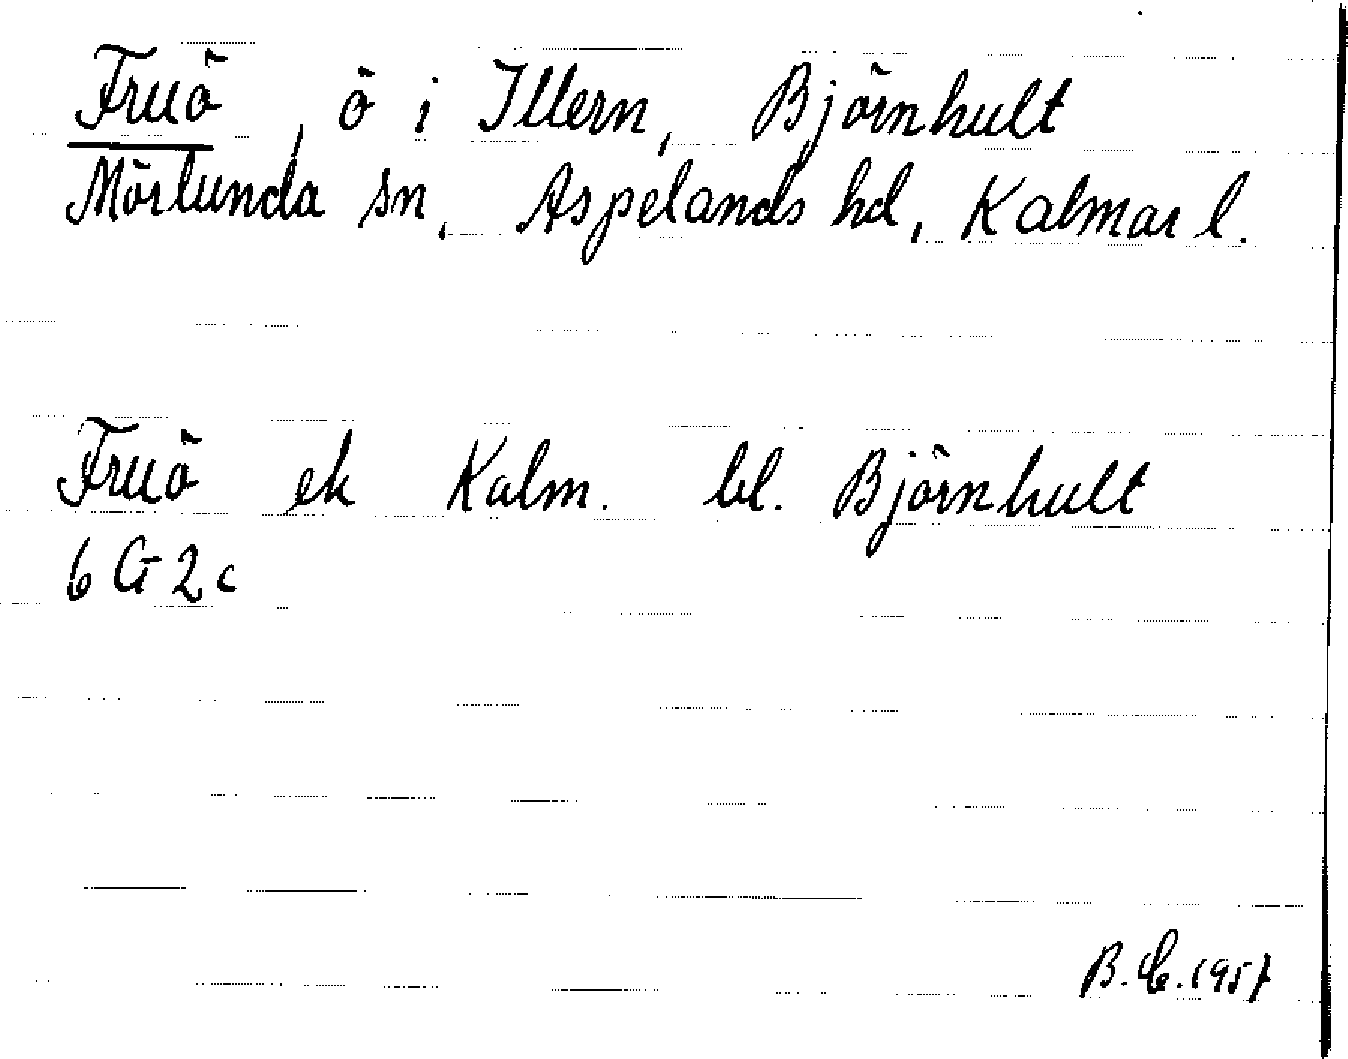 Fruö, ö i Illern, Björnhult
Mörlunda sn, Aspelands hd, Kalmar l.
Fruö ek Kalm. bl. Björnhult
6 G 2 c
B. E. 1957